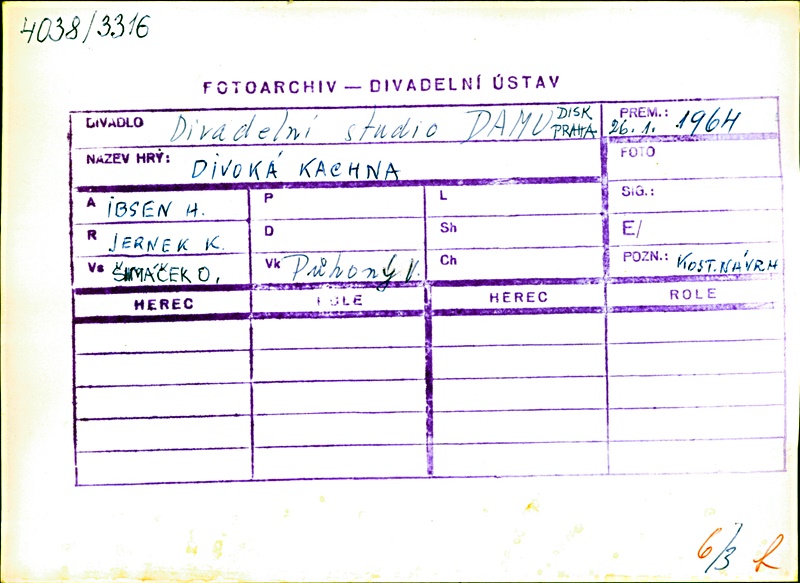 4038/3316
FOTOARCHIV — DIVADELNÍ ÚSTAV
DIVADLO Divadelní studio DAMU DISK PRAHA PREM.: 26.1. 1964
NÁZEV HRY: DIVOKÁ KACHNA FOTO
A IBSEN H. P L SIG.:
R JERNEK K. D Sh E/
Vs ŠIMÁČEK O. Vk Průhoný V. Ch POZN.: KOST. NÁVRH
HEREC ROLE HEREC ROLE
6/3